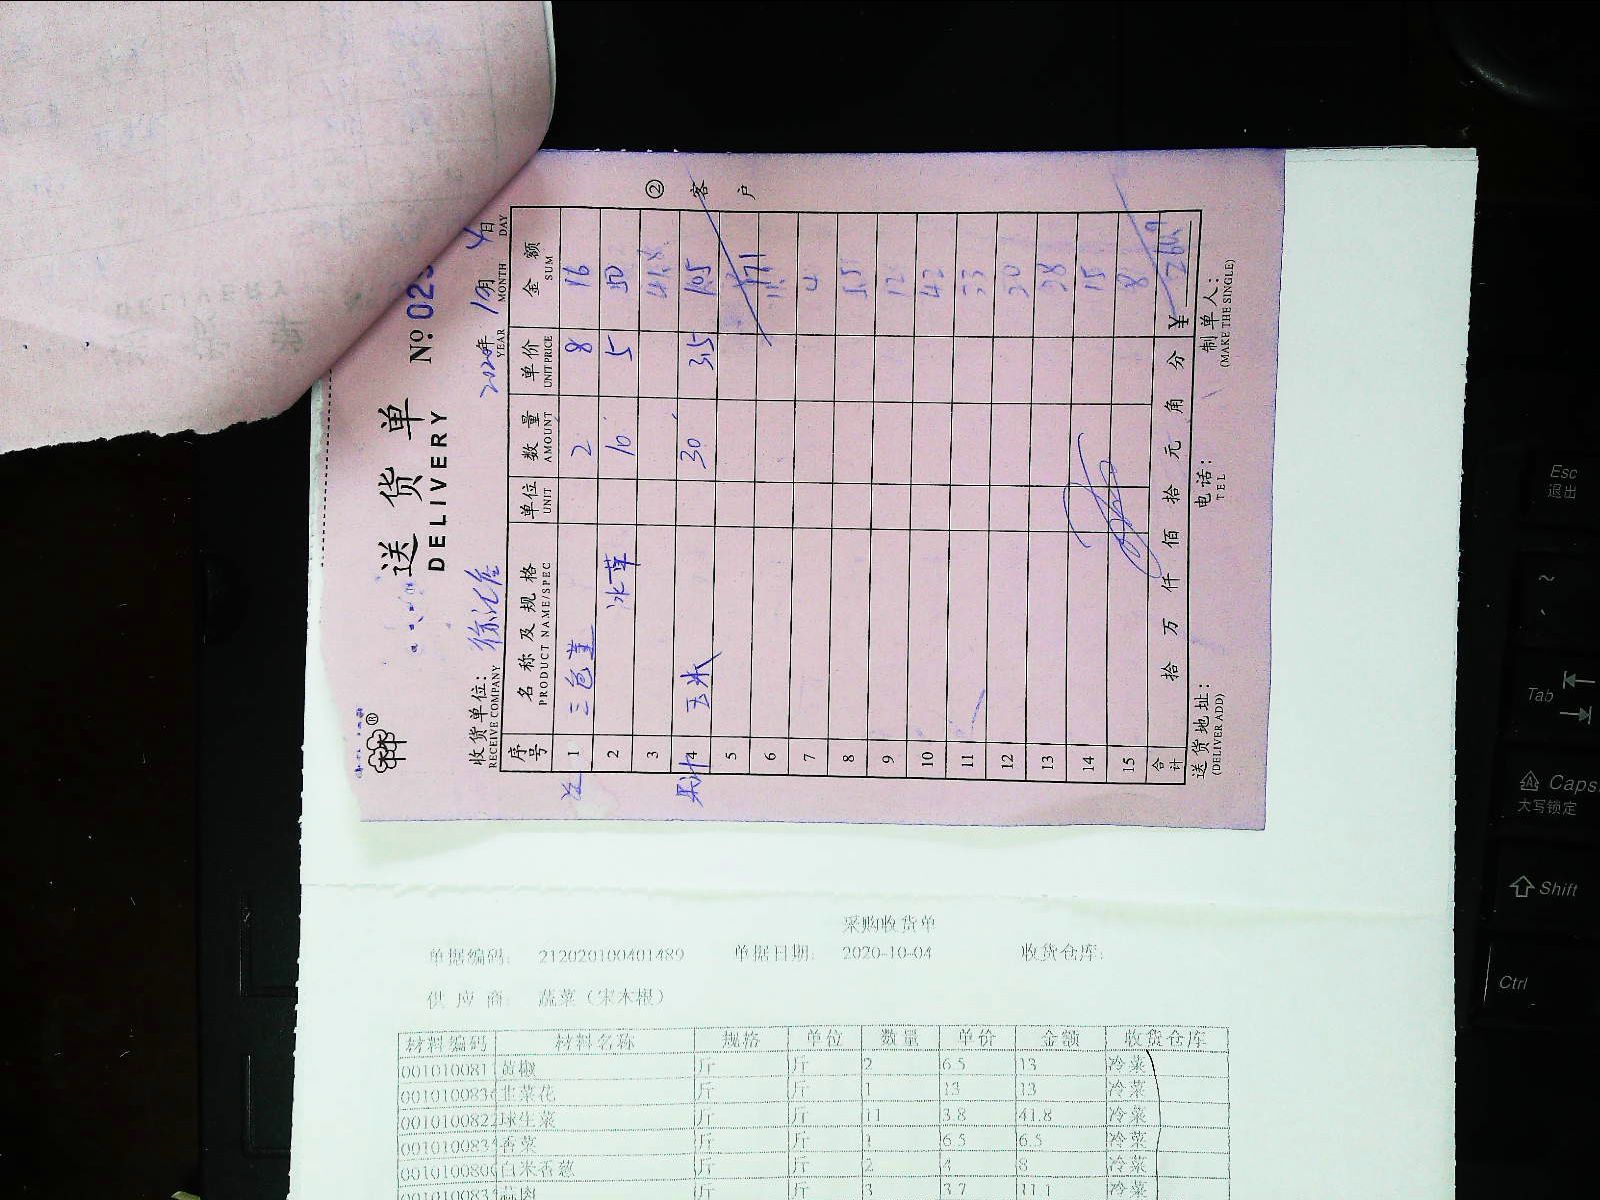 送货单
DELIVERY
№:
收货单位:
RECEIVE COMPANY
2020年 10月 4日
YEAR MONTH DAY
② 客户
序号 名称及规格 单位 数量 单价 金额
PRODUCT NAME/SPEC UNIT AMOUNT UNIT PRICE SUM
1 三色堇 2 8 16
2 冰草 10 5 50
3 41.8
果汁 4 玉米 30 3.5 105
5 171
6
7 4
8
9 12
10 42
11 33
12 20
13 28
14 15
15 8
合计 拾 万 仟 佰 拾 元 角 分 ¥
送货地址: 电话: 制单人:
(DELIVER ADD) TEL (MAKE THE SINGLE)
采购收货单
单据编码: 212020100401489 单据日期: 2020-10-04 收货仓库:
供应商: 蔬菜(宋本根)
材料编码 材料名称 规格 单位 数量 单价 金额 收货仓库
0010100811 斤 斤 2 6.5 13 冷菜
001010083 韭菜花 斤 斤 1 13 13 冷菜
0010100822 球生菜 斤 斤 11 3.8 41.8 冷菜
001010083 香菜 斤 斤 1 6.5 6.5 冷菜
001010080 白米香葱 斤 斤 2 4 8 冷菜
001010083 斤 斤 3 3.7 11.1 冷菜
Esc
退出
~
Tab
Caps
大写锁定
Shift
Ctrl